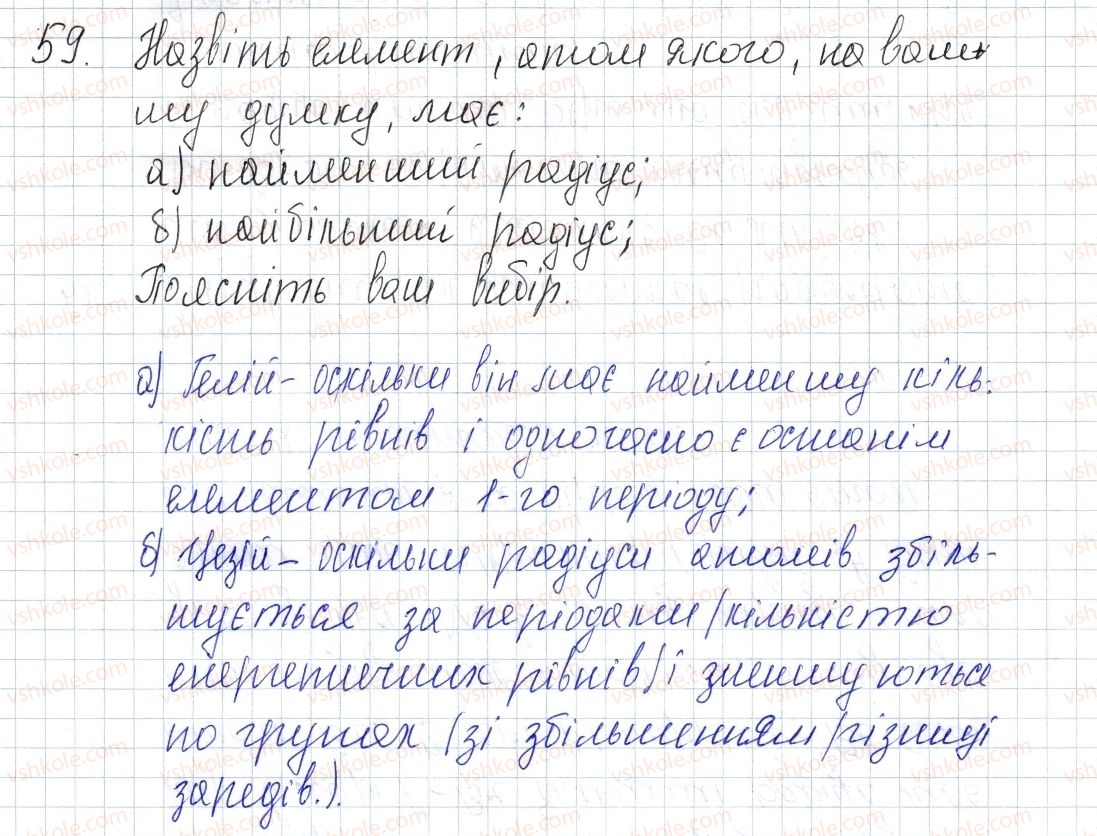 59. Назвіть елемент, атом якого, на ваш
шу думку, має:
а) найменший радіус;
б) найбільший радіус;
Поясніть ваш вибір.
а) Гелій - оскільки він має найменшу кіль-
кість рівнів і одночасно є останім
елементом 1-го періоду;
б) Цезій - оскільки радіуси атомів збіль-
шується за періодами (кількістю
енергетичних рівнів) і зменшуються
по групах (зі збільшенням різниці
зарядів.).